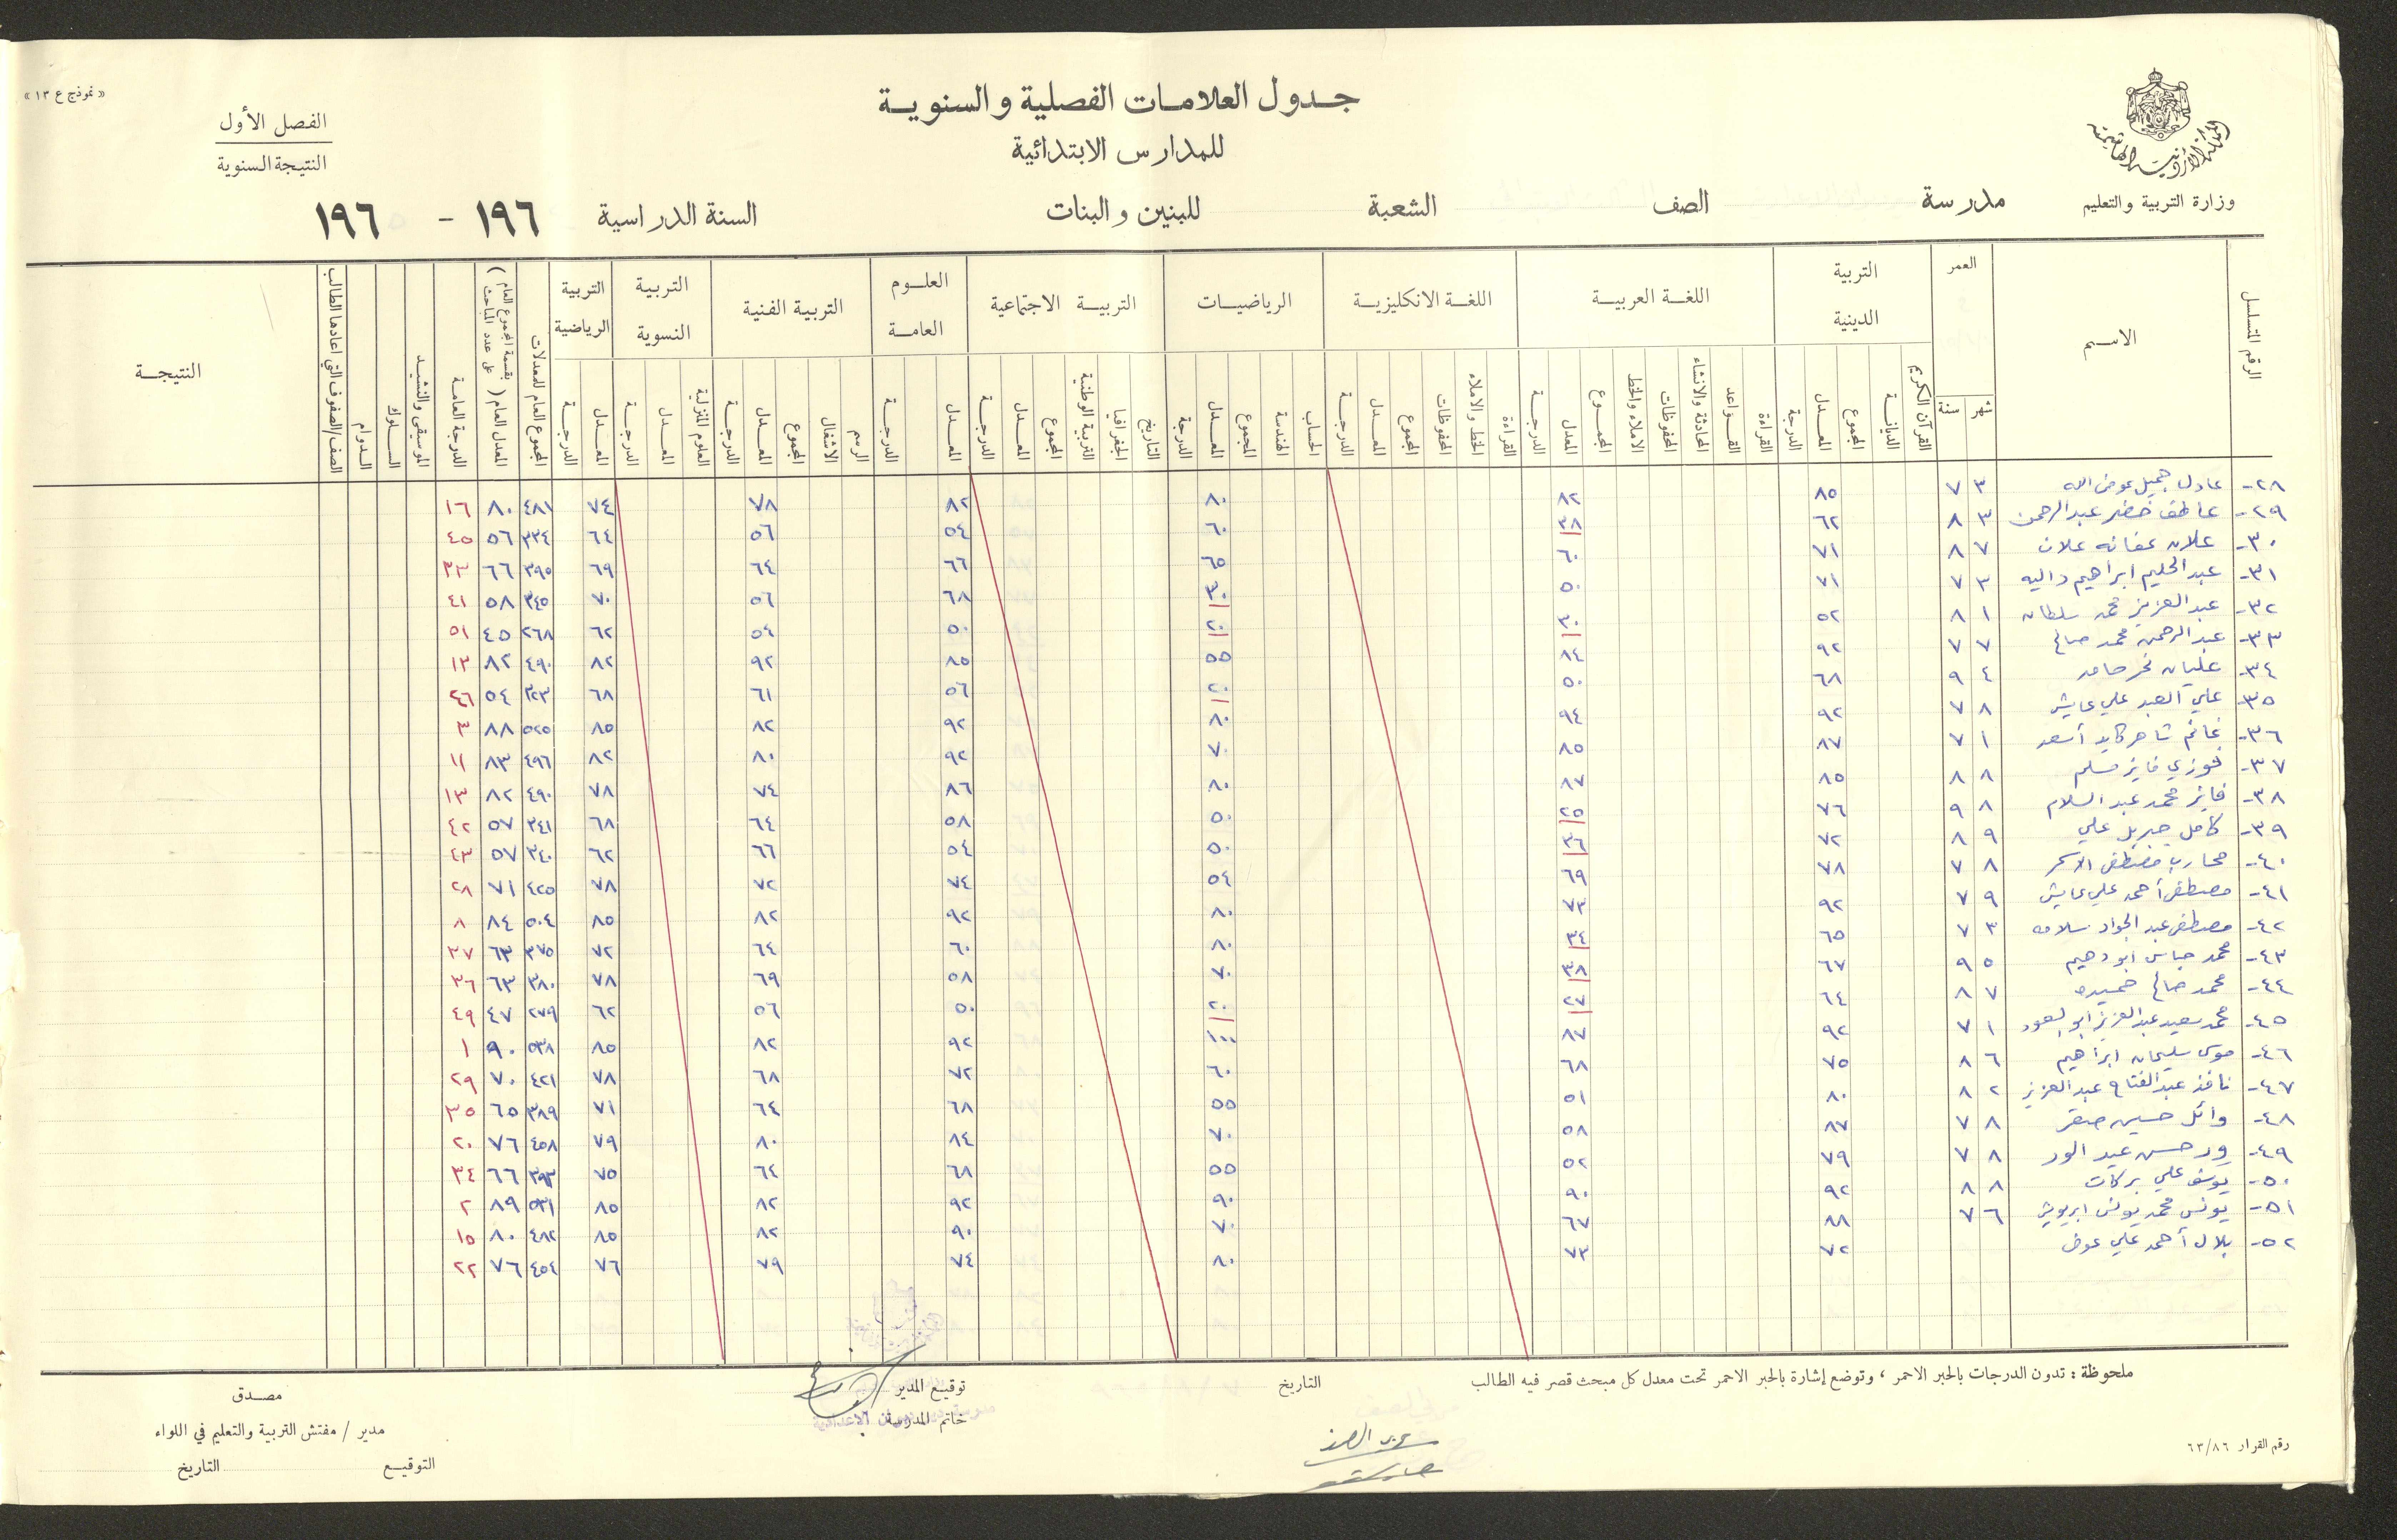 « نموذج ع ١٣ »
جدول العلامات الفصلية والسنوية
للمدارس الابتدائية
الفصل الأول
النتيجة السنوية
المملكة الأردنية الهاشمية
وزارة التربية والتعليم
مدرسة الصف الشعبة للبنين والبنات السنة الدراسية ١٩٦ - ١٩٦
الرقم المتسلسل الاسم العمر التربية الدينية اللغة العربية اللغة الانكليزية الرياضيات التربية الاجتماعية العلوم العامة التربية الفنية التربية النسوية التربية الرياضية المجموع العام للمعدلات المعدل العام ( بقسمة المجموع العام على عدد المباحث ) الدرجة العامة الموسيقى والنشيد السلوك الدوام الصف/الصفوف التي اعادها الطالب النتيجة
شهر سنة القرآن الكريم الديانة المجموع المعدل الدرجة القراءة القواعد المحادثة والانشاء المحفوظات الاملاء والخط المجموع المعدل الدرجة القراءة الخط والاملاء المحفوظات المجموع المعدل الدرجة الحساب الهندسة المجموع المعدل الدرجة التاريخ الجغرافيا التربية الوطنية المجموع المعدل الدرجة المعدل الدرجة الرسم الاشغال المجموع المعدل الدرجة العلوم المنزلية المعدل الدرجة المعدل الدرجة
٢٨- عادل جميل عوض الله ٣ ٧ ٨٥ ٨٢ ٨٠ ٨٢ ٧٨ ٧٤ ٤٨١ ٨٠ ١٦
٢٩- عاطف خضر عبد الرحمن ٣ ٨ ٦٢ ٣٨ ٦٠ ٥٤ ٥٦ ٦٤ ٣٣٤ ٥٦ ٤٥
٣٠- علان عفانه علان ٧ ٨ ٧١ ٦٠ ٦٥ ٦٦ ٦٤ ٦٩ ٣٩٥ ٦٦ ٣٣
٣١- عبد الحليم ابراهيم داليه ٣ ٧ ٧١ ٥٠ ٣٠ ٦٨ ٥٦ ٧٠ ٣٤٥ ٥٨ ٤١
٣٢- عبد العزيز محمد سلطان ١ ٨ ٥٢ ٣٠ ٢٠ ٥٠ ٥٤ ٦٢ ٢٦٨ ٤٥ ٥١
٣٣- عبد الرحمن محمد صالح ٧ ٧ ٩٢ ٨٤ ٥٥ ٨٥ ٩٢ ٨٢ ٤٩٠ ٨٢ ١٣
٣٤- عليان نمر حامد ٤ ٩ ٦٨ ٥٠ ٢٠ ٥٦ ٦١ ٦٨ ٣٢٣ ٥٤ ٤٦
٣٥- علي العبد علي عايش ٨ ٧ ٩٢ ٩٤ ٨٠ ٩٢ ٨٢ ٨٥ ٥٢٥ ٨٨ ٣
٣٦- غانم شاهر كايد أسعد ١ ٧ ٨٧ ٨٥ ٧٠ ٩٢ ٨٠ ٨٢ ٤٩٦ ٨٣ ١١
٣٧- فوزي فايز مسلم ٨ ٨ ٨٥ ٨٧ ٨٠ ٨٦ ٧٤ ٧٨ ٤٩٠ ٨٢ ١٣
٣٨- فايز محمد عبد السلام ٨ ٩ ٧٦ ٢٥ ٥٠ ٥٨ ٦٤ ٦٨ ٣٤١ ٥٧ ٤٢
٣٩- كامل جبريل علي ٩ ٨ ٧٢ ٣٦ ٥٠ ٥٤ ٦٦ ٦٢ ٣٤٠ ٥٧ ٤٣
٤٠- محارب مصطفى الاسمر ٨ ٧ ٧٨ ٦٩ ٥٤ ٧٤ ٧٢ ٧٨ ٤٢٥ ٧١ ٢٨
٤١- مصطفى أحمد علي عايش ٩ ٧ ٩٢ ٧٣ ٨٠ ٩٢ ٨٢ ٨٥ ٥٠٤ ٨٤ ٨
٤٢- مصطفى عبد الجواد سلامه ٣ ٧ ٦٥ ٣٤ ٨٠ ٦٠ ٦٤ ٧٢ ٣٧٥ ٦٣ ٣٧
٤٣- محمد عباس ابو دهيم ٥ ٩ ٦٧ ٣٨ ٧٠ ٥٨ ٦٩ ٧٨ ٣٨٠ ٦٣ ٣٦
٤٤- محمد صالح حميده ٧ ٨ ٦٤ ٢٧ ٢٠ ٥٠ ٥٦ ٦٢ ٢٧٩ ٤٧ ٤٩
٤٥- محمد سعيد عبد العزيز ابو لسعود ١ ٧ ٩٢ ٨٧ ١٠٠ ٩٢ ٨٢ ٨٥ ٥٣٨ ٩٠ ١
٤٦- موسى سليمان ابراهيم ٦ ٨ ٧٥ ٦٨ ٦٠ ٧٢ ٦٨ ٧٨ ٤٢١ ٧٠ ٢٩
٤٧- نافذ عبد الفتاح عبد العزيز ٢ ٨ ٨٠ ٥١ ٥٥ ٦٨ ٦٤ ٧١ ٣٨٩ ٦٥ ٣٥
٤٨- وائل حسين صقر ٨ ٧ ٨٧ ٥٨ ٧٠ ٨٤ ٨٠ ٧٩ ٤٥٨ ٧٦ ٢٠
٤٩- ورد حسن عبد الورد ٨ ٧ ٧٩ ٥٢ ٥٥ ٦٨ ٦٤ ٧٥ ٣٩٣ ٦٦ ٣٤
٥٠- يوسف علي بركات ٨ ٨ ٩٢ ٩٠ ٩٠ ٩٢ ٨٢ ٨٥ ٥٣١ ٨٩ ٢
٥١- يونس محمد يونس ابريوش ٦ ٧ ٨٨ ٦٧ ٧٠ ٩٠ ٨٢ ٨٥ ٤٨٢ ٨٠ ١٥
٥٢- بلال أحمد علي عوض ٧٢ ٧٣ ٨٠ ٧٤ ٧٩ ٧٦ ٤٥٤ ٧٦ ٢٢
ملحوظة : تدون الدرجات بالحبر الاحمر ، وتوضع إشارة بالحبر الاحمر تحت معدل كل مبحث قصر فيه الطالب
التاريخ
توقيع المدير
خاتم المدرسة
مصدق
مدير / مفتش التربية والتعليم في اللواء
التوقيع التاريخ
رقم القرار ٦٣/٨٦